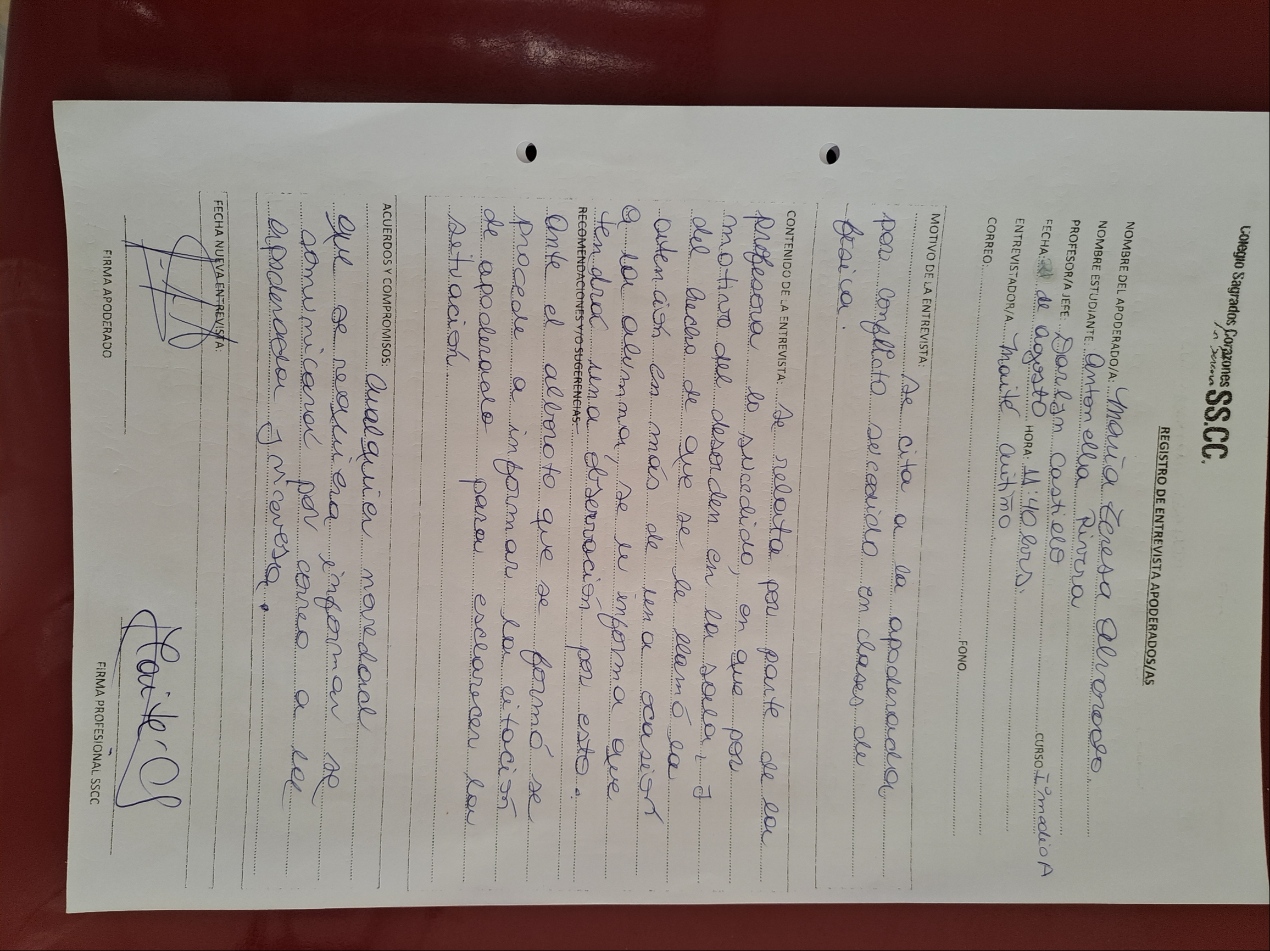 Colegio Sagrados Corazones
SS.CC.
REGISTRO DE ENTREVISTA APODERADOS/AS
NOMBRE DEL APODERADO/A: María Teresa Alvarado
NOMBRE ESTUDIANTE: Antonella Rivera
PROFESOR/A JEFE: Darlyn Castillo CURSO: I° medio A
FECHA: de agosto HORA: 11:40 hrs.
ENTREVISTADOR/A: Maité
CORREO: FONO
MOTIVO DE LA ENTREVISTA: Se cita a la apoderada
por conflicto sucedido en clases de
física.
CONTENIDO DE LA ENTREVISTA: Se relata por parte de la
profesora lo sucedido, en que por
motivo del desorden en la sala, y
del hecho de que se le llamó la
atención en más de una ocasión
a la alumna, se le informa que
tendrá una observación por esto.
RECOMENDACIONES Y/O SUGERENCIAS:
Ante el alboroto que se formó se
procede a informar la citación
de apoderado para esclarecer la
situación.
ACUERDOS Y COMPROMISOS: Cualquier novedad
que se requiera informar se
comunicará por correo a la
apoderada y viceversa.
FECHA NUEVA ENTREVISTA:
FIRMA APODERADO
Maite
FIRMA PROFESIONAL SSCC